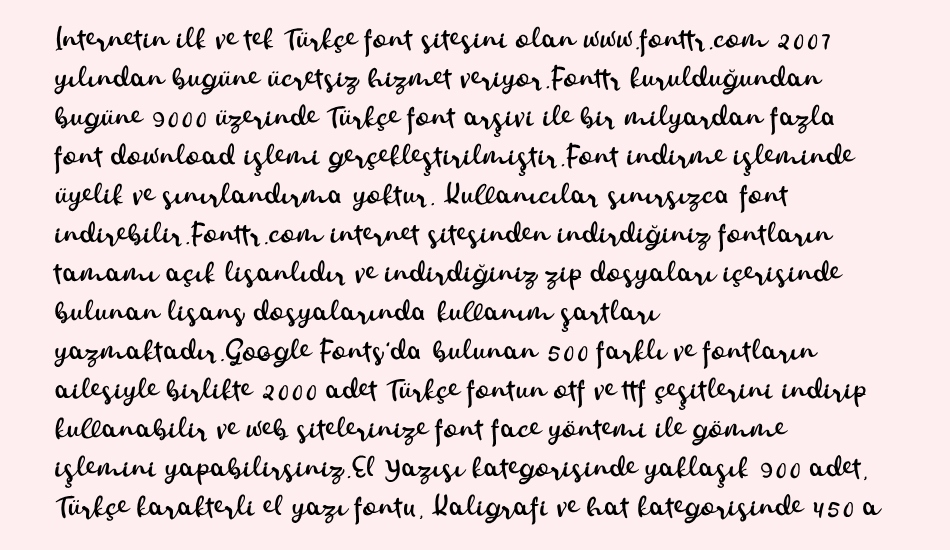 Internetin ilk ve tek Türkçe font sitesini olan www.fonttr.com 2007
yılından bugüne ücretsiz hizmet veriyor.Fonttr kurulduğundan
bugüne 9000 üzerinde Türkçe font arşivi ile bir milyardan fazla
font download işlemi gerçekleştirilmiştir.Font indirme işleminde
üyelik ve sınırlandırma yoktur. Kullanıcılar sınırsızca font
indirebilir.Fonttr.com internet sitesinden indirdiğiniz fontların
tamamı açık lisanlıdır ve indirdiğiniz zip dosyaları içerisinde
bulunan lisans dosyalarında kullanım şartları
yazmaktadır.Google Fonts'da bulunan 500 farklı ve fontların
ailesiyle birlikte 2000 adet Türkçe fontun otf ve ttf çeşitlerini indirip
kullanabilir ve web sitelerinize font face yöntemi ile gömme
işlemini yapabilirsiniz.El Yazısı kategorisinde yaklaşık 900 adet,
Türkçe karakterli el yazı fontu, Kaligrafi ve hat kategorisinde 450 a